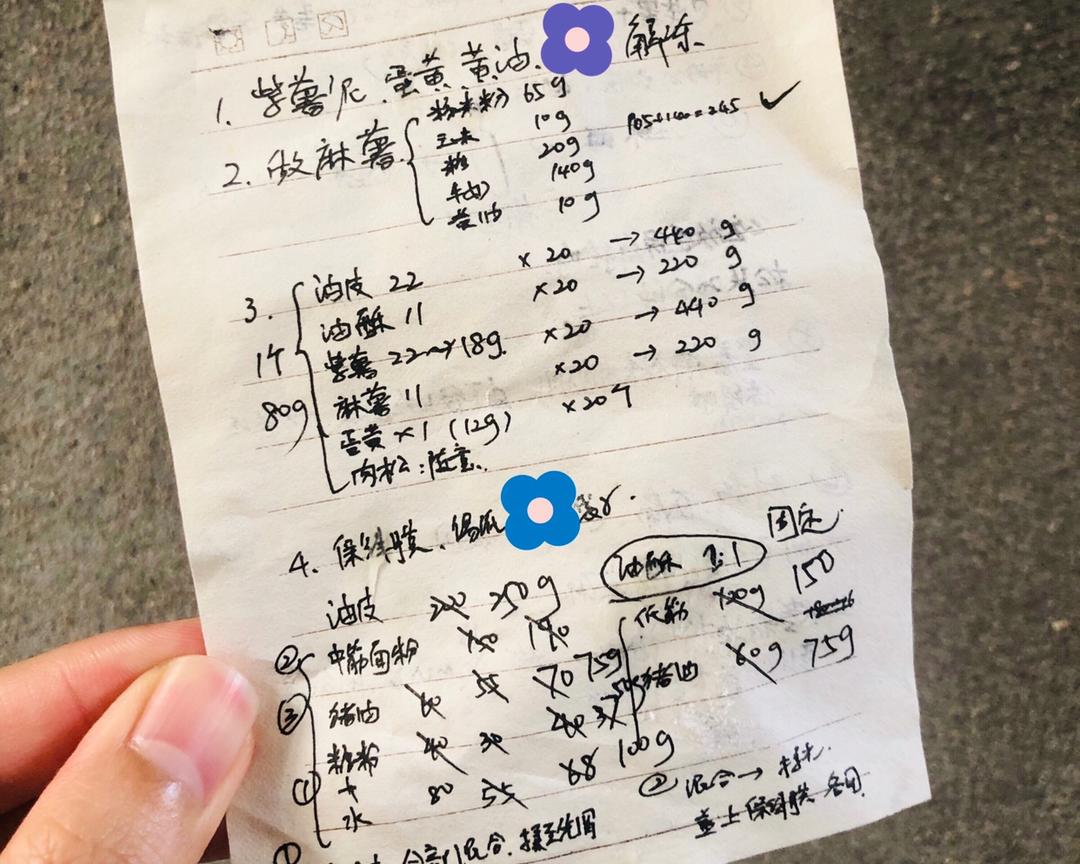 1. 紫薯泥.蛋黄 黄油. 解冻
2. 做麻薯 糯米粉 65g
玉米 10g
糖 20g
牛奶 140g
黄油 10g
105+140=245 ✓
3. 1个 80g
油皮 22 ×20 → 440 g
油酥 11 ×20 → 220 g
紫薯 22~→18g. ×20 → 440 g
麻薯 11 ×20 → 220 g
蛋黄 ×1 (12g) ×20个
肉松:随意.
4. 保鲜膜.锡纸
油皮 250g
② 中筋面粉
③ 猪油 60 55 70 75g
糖粉 40 30 40 37
① 水 80 55 68 100g
油酥 2:1 固定.
低筋 120g 150
猪油 60g 75g
② 混合→ 揉光.
盖上保鲜膜 备用.
①
混合.揉至光滑